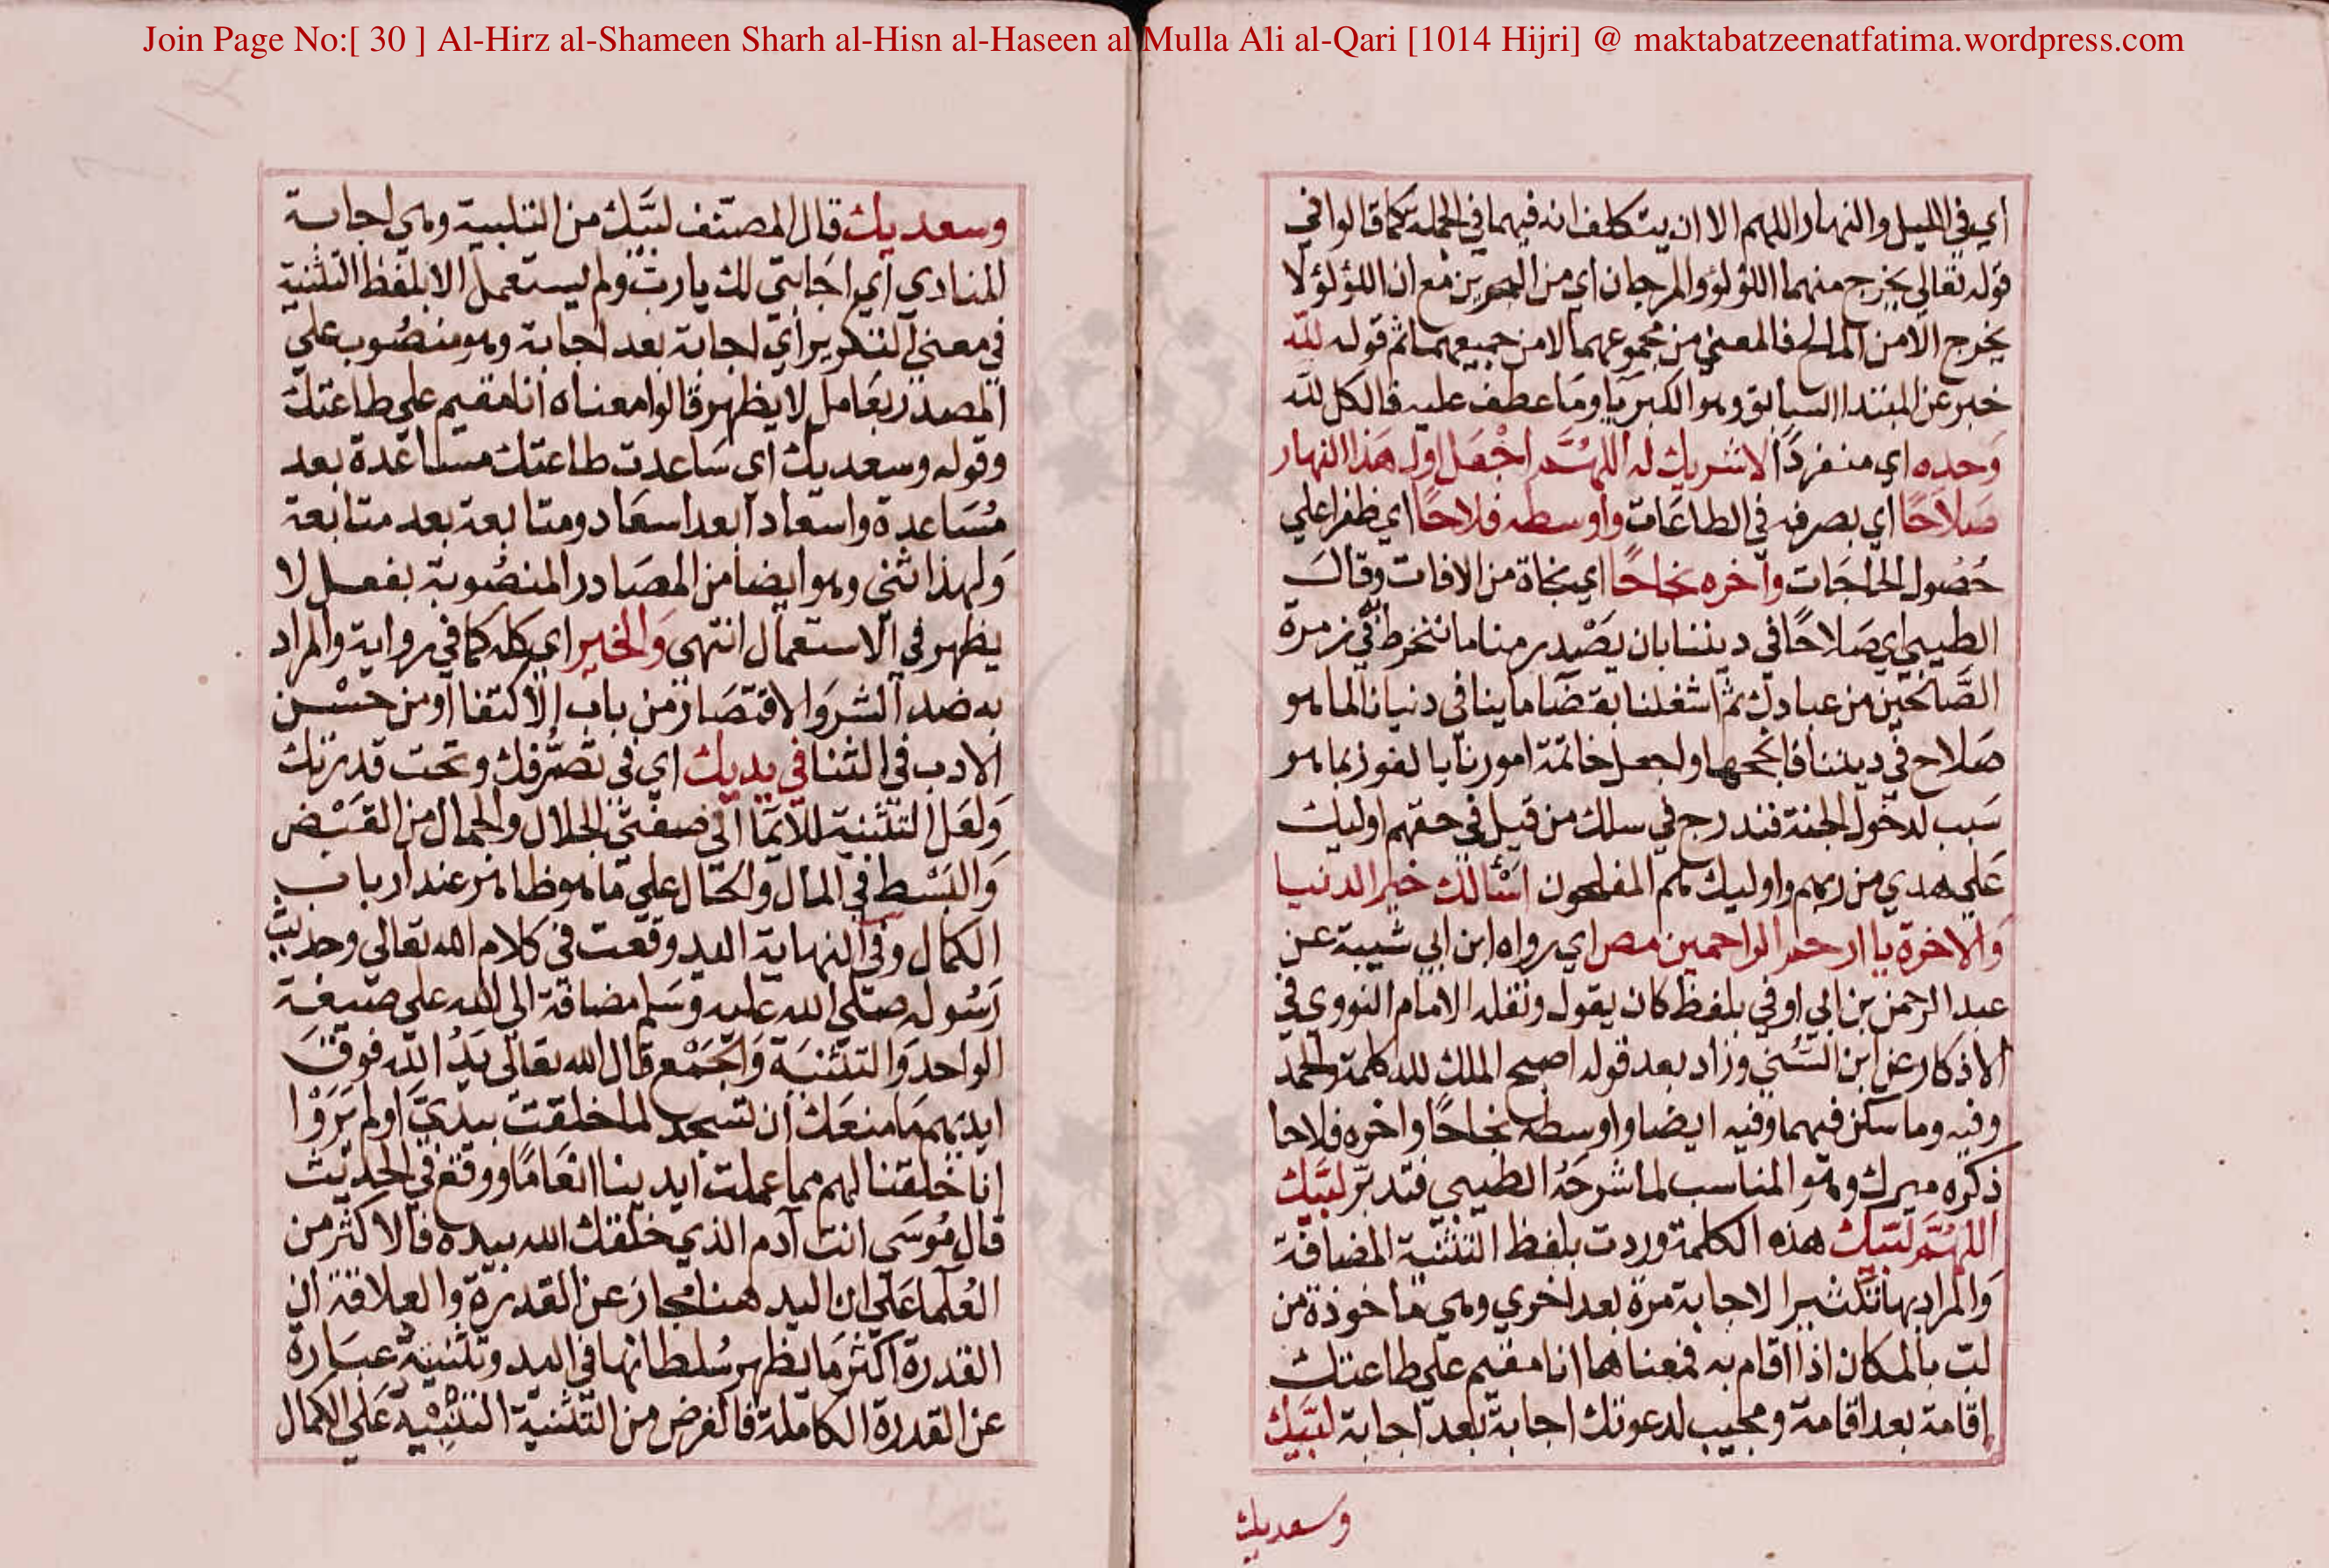 Join Page No:[ 30 ] Al-Hirz al-Shameen Sharh al-Hisn al-Haseen al Mulla Ali al-Qari [1014 Hijri] @ maktabatzeenatfatima.wordpress.com
اي في الليل والنهار اللهم الا ان يتكلف انه فيهما في الجملة كما قالوا في
قوله تعالي يخرج منهما اللؤلؤ والمرجان اي من البحرين مع ان اللؤلؤ لا
يخرج الا من المالح فالمعني من مجموعهما لا من جميعهما ثم قوله لله
خبر عن المبتدا السابق وهو الكبريا وما عطف عليه فالكل لله
وحده اي منفردا لا شريك له اللهم اجعل اول هذا النهار
صلاحًا اي بصرفه في الطاعات واوسطه فلاحًا اي ظفرا علي
حصول الحاجات واخره نجاحًا اي نجاة من الافات وقال
الطيبي اي صلاحًا في ديننا بان يصدر منا ما ننخرط في زمرة
الصالحين من عبادك ثم اشغلنا بقضا ماينا في دنيانا لما هو
صلاح في ديننا فانجحها واجعل خاتمة امورنا بالفوز بما هو
سبب لدخول الجنة فندرج في سلك من قيل في حقهم اوليك
علي هدي من ربهم واوليك هم المفلحون اسْألك خير الدنيا
والاخرة يا ارحم الراحمين مص اي رواه ابن ابي شيبة عن
عبد الرحمن بن ابي اوفي بلفظ كان يقول ونقله الامام النووي في
الاذكار عن ابن السُّني وزاد بعد قوله اصبح الملك لله كلمة والحمد
وفيه وما سكن فيهما وفيه ايضا واوسطه نجاحًا واخره فلاحا
ذكره ميرك وهو المناسب لما شرحه الطيبي فتدبر لبَّيك
اللهُمَّ لبَّيك هذه الكلمة وردت بلفظ التثنية المضافة
والمراد بها تكثير الاجابة مرة بعد اخري وهي ماخوذة من
لب بالمكان اذا اقام به فمعناها انا مقيم علي طاعتك
إقامة بعد اقامة ومجيب لدعوتك اجابة بعد اجابة لبَّيك
وسعديك
وسعديك قال المصنف لبَّيك من التلبية وهي اجابة
المنادي اي اجابتي لك يا رب ولم يستعمل الا بلفظ التثنية
في معني التكرير اي اجابة بعد اجابة وهو منصوب علي
المصدر بعامل لا يظهر قالوا معناه انا مقيم علي طاعتك
وقوله وسعديك اي ساعدت طاعتك مساعدة بعد
مُساعدة واسعادا بعد اسعاد ومتابعة بعد متابعة
ولهذا ثني وهو ايضا من المصادر المنصُوبة بفعل لا
يظهر في الاستعمال انتهي والخير اي كله كما في رواية والمراد
به ضد الشر والاقتصار من باب الاكتفا او من حسن
الادب في الثنا في يديك اي في تصرفك وتحت قدرتك
ولعل التثنية للايما الي صفتي الجلال والجمال من القبْض
والبسْط في المال والحال علي ما هو ظاهر عند ارباب
الكمال وفي النهاية اليد وقعت في كلام الله تعالي وحديث
رسُوله صلي الله عليه وسلم مضافة الي الله علي صيغة
الواحد والتثنية والجمْع قال الله تعالي يَدُ الله فوق
ايديهم ما منعك ان تسجد لما خلقت بيديَّ اولم يَرَوْا
انا خلقنا لهم مما عملت ايدينا انعامًا ووقع في الحديث
قال مُوسَى انت آدم الذي خلقك الله بيده فالاكثر من
العُلما علي ان اليد هنا مجاز عن القدرة والعلاقة ان
القدرة اكثر ما يظهر سُلطانها في اليد وتثنيته عبارة
عن القدرة الكاملة فالغرض من التثنية التنبْيه علي الكمال